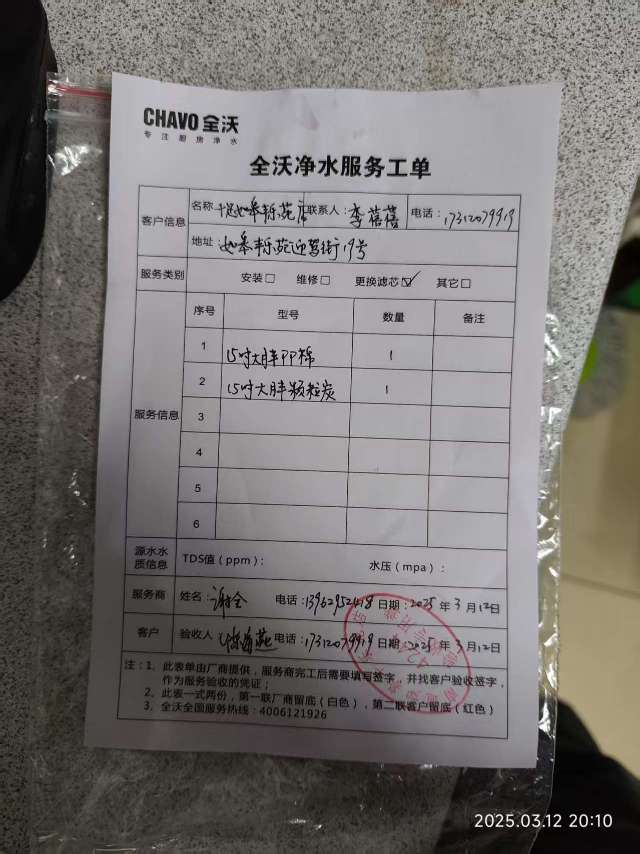 CHAVO 全沃
专注厨房净水
全沃净水服务工单
客户信息 名称 联系人：李蓓蓓 电话：17312079919
地址：如皋丰乐苑迎驾街19号
服务类别 安装□ 维修□ 更换滤芯☑ 其它□
服务信息 序号 型号 数量 备注
1 15吋大胖PP棉 1
2 15吋大胖颗粒炭 1
3
4
5
6
源水水质信息 TDS值（ppm）： 水压（mpa）：
服务商 姓名： 电话：13962952418 日期：2025年3月12日
客户 验收人 电话：17312079919 日期：2025年3月12日
注：1、此表单由厂商提供，服务商完工后需要填写签字，并找客户验收签字，
作为服务验收的凭证；
2、此表一式两份，第一联厂商留底（白色），第二联客户留底（红色）
3、全沃全国服务热线：4006121926
2025.03.12 20:10